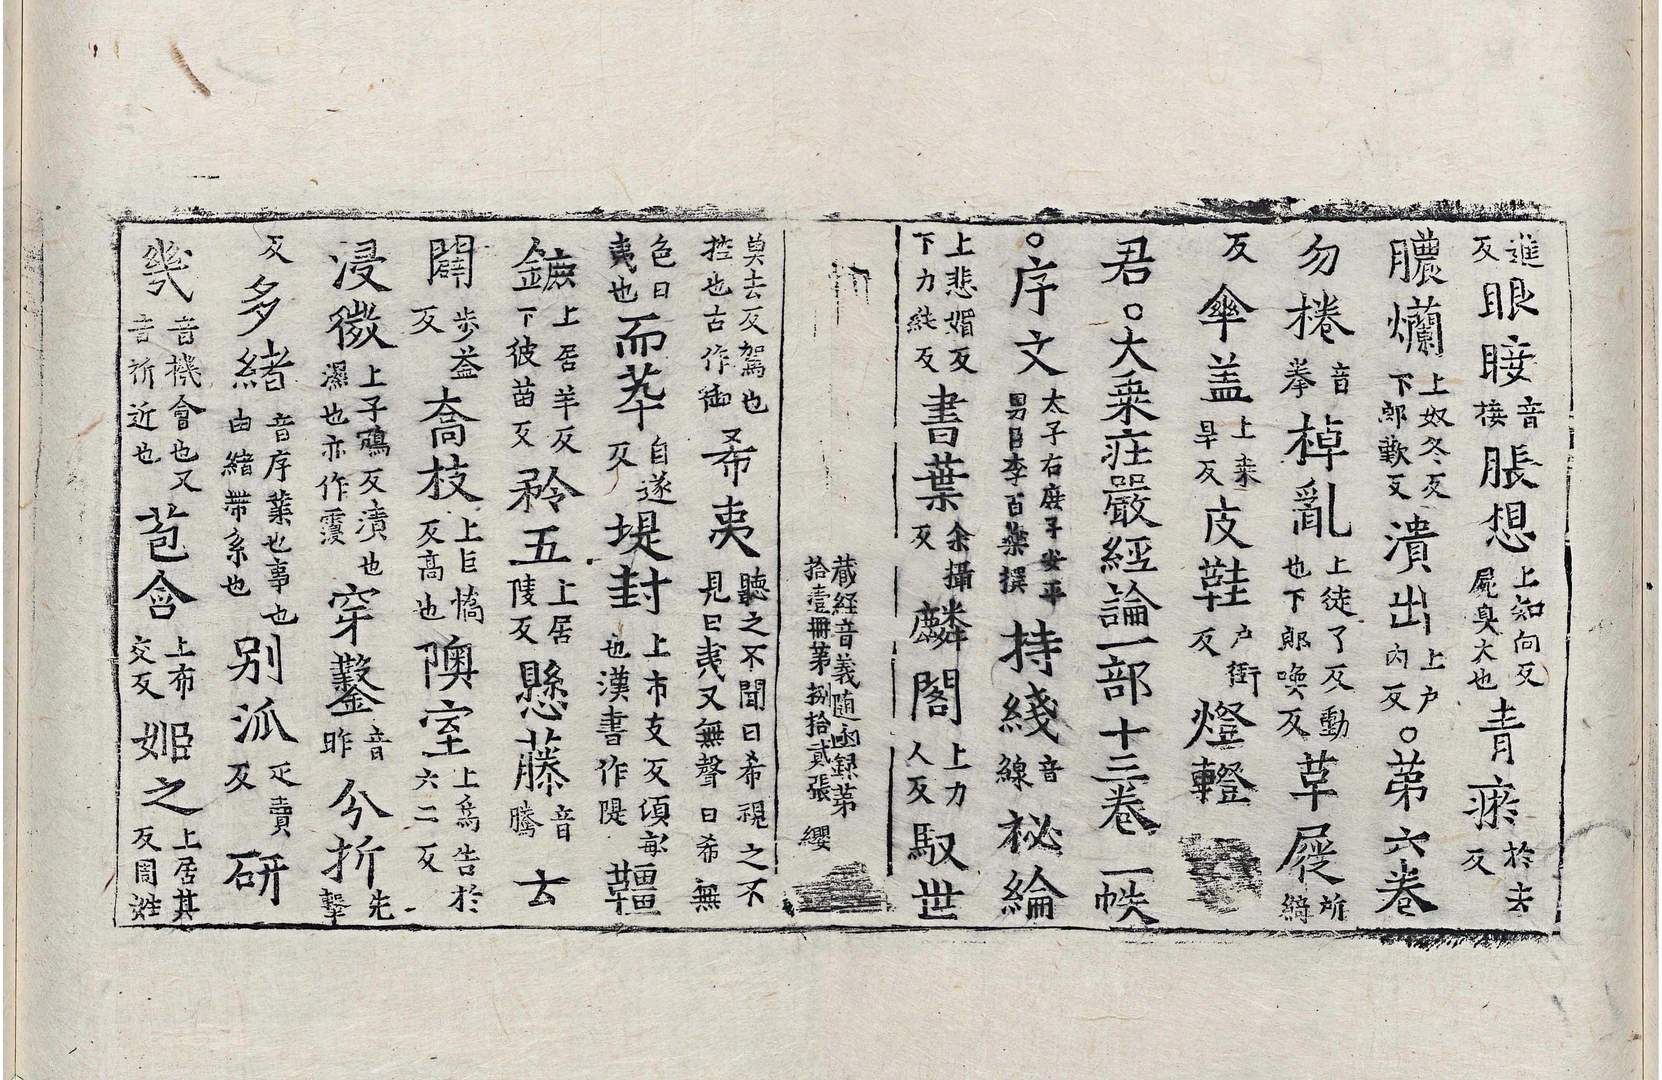 進反眼䁖音棲脹想上知向反屍臭大也青瘀於去反
膿爛上奴冬反下郎歎反潰出上戶內反。第六卷
勿捲音拳棹亂上徒了反動也下郎喚反草屣所綺
反傘盖上桒旱反皮鞋戶街反燈䡷
君。大乗莊嚴經論一部十三卷一帙
。序文太子右庶子安平男臣李百藥撰持綫音線祕綸
上悲媚反下力純反書葉余攝反麟閣上力人反馭世
藏経音義随函録第拾壹冊第捌拾貳張 纓
莫去反駕也控也古作御希夷聽之不聞曰希視之不見曰夷又無聲曰希無
色曰夷也而苹自遂反堤封上市支反頃畝也漢書作隄韁
鑣上居羊反下彼苗反矜五上居陵反懸藤音騰去
闢步益反喬枝上巨憍反高也隩室上烏告於六二反
浸微上子鴆反漬也濕也亦作寖穿鑿音昨分折先擊
反多緒音序業也事也由緒帶系也別派疋賣反研
幾音機會也又音祈近也苞含上布交反姬之上居其反周姓